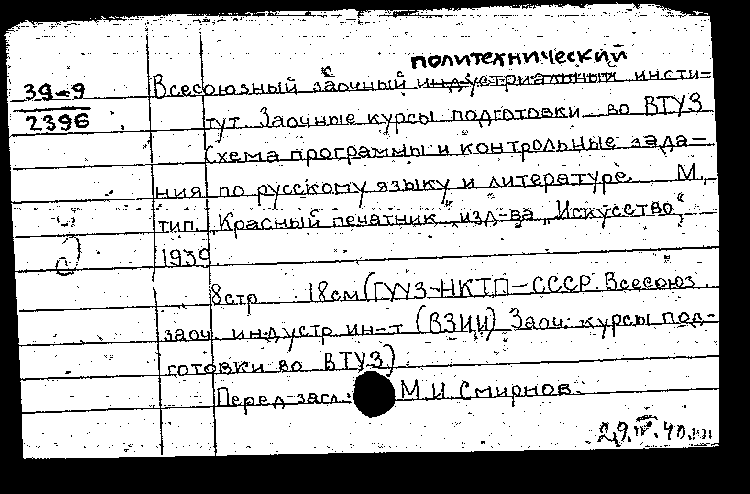 политехнический
39-9 Всесоюзный заочный индустриальный инсти-
2396 тут. Заочные курсы подготовки во ВТУЗ
Схема программы и контрольные зада-
ния по русскому языку и литературе. М.,
тип. „Красный печатник" изд-ва „Искусство",
1939
8 стр 18 см (ГУУЗ-НКТП-СССР. Всесоюз.
заоч. индустр. ин-т (ВЗИИ) Заоч. курсы под-
готовки во ВТУЗ)
Перед загл.: М.И. Смирнов.
29.IV.40